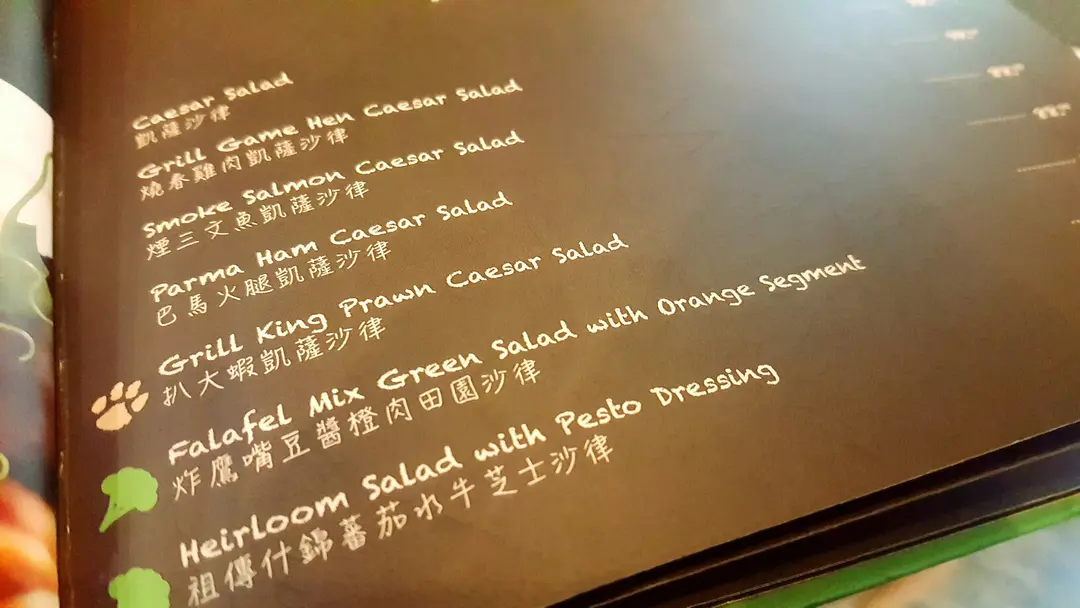 Caesar Salad
凱薩沙律
Grill Game Hen Caesar Salad
燒春雞肉凱薩沙律
Smoke Salmon Caesar Salad
煙三文魚凱薩沙律
Parma Ham Caesar Salad
巴馬火腿凱薩沙律
Grill King Prawn Caesar Salad
扒大蝦凱薩沙律
Falafel Mix Green Salad with Orange Segment
炸鷹嘴豆醬橙肉田園沙律
Heirloom Salad with Pesto Dressing
祖傳什錦蕃茄水牛芝士沙律